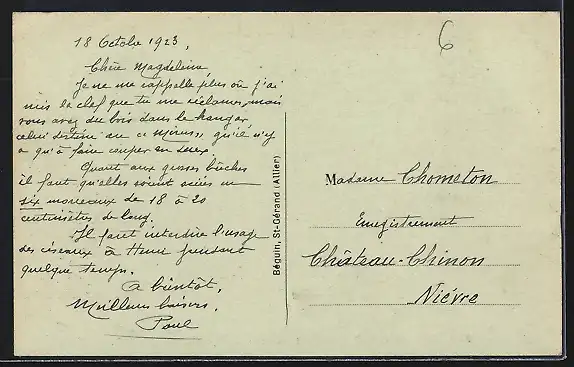 18 Octobre 1923,
6
Chère Magdeleine
Je ne me rappelle plus où j'ai
mis la clef que tu me réclames, mais
vous avez du bois dans le hangar
celui destiné au qu'il n'y
a qu'à faire couper en deux.
Quant aux grosses bûches
il faut qu'elles soient sciées en
six morceaux de 18 à 20
centimètres de long.
Il faut interdire l'usage
des ciseaux à Henri pendant
quelque temps.
A bientôt,
Meilleurs baisers,
Paul
Béguin, St-Gérand (Allier)
Madame Chometon
Enregistrement
Château-Chinon
Nièvre